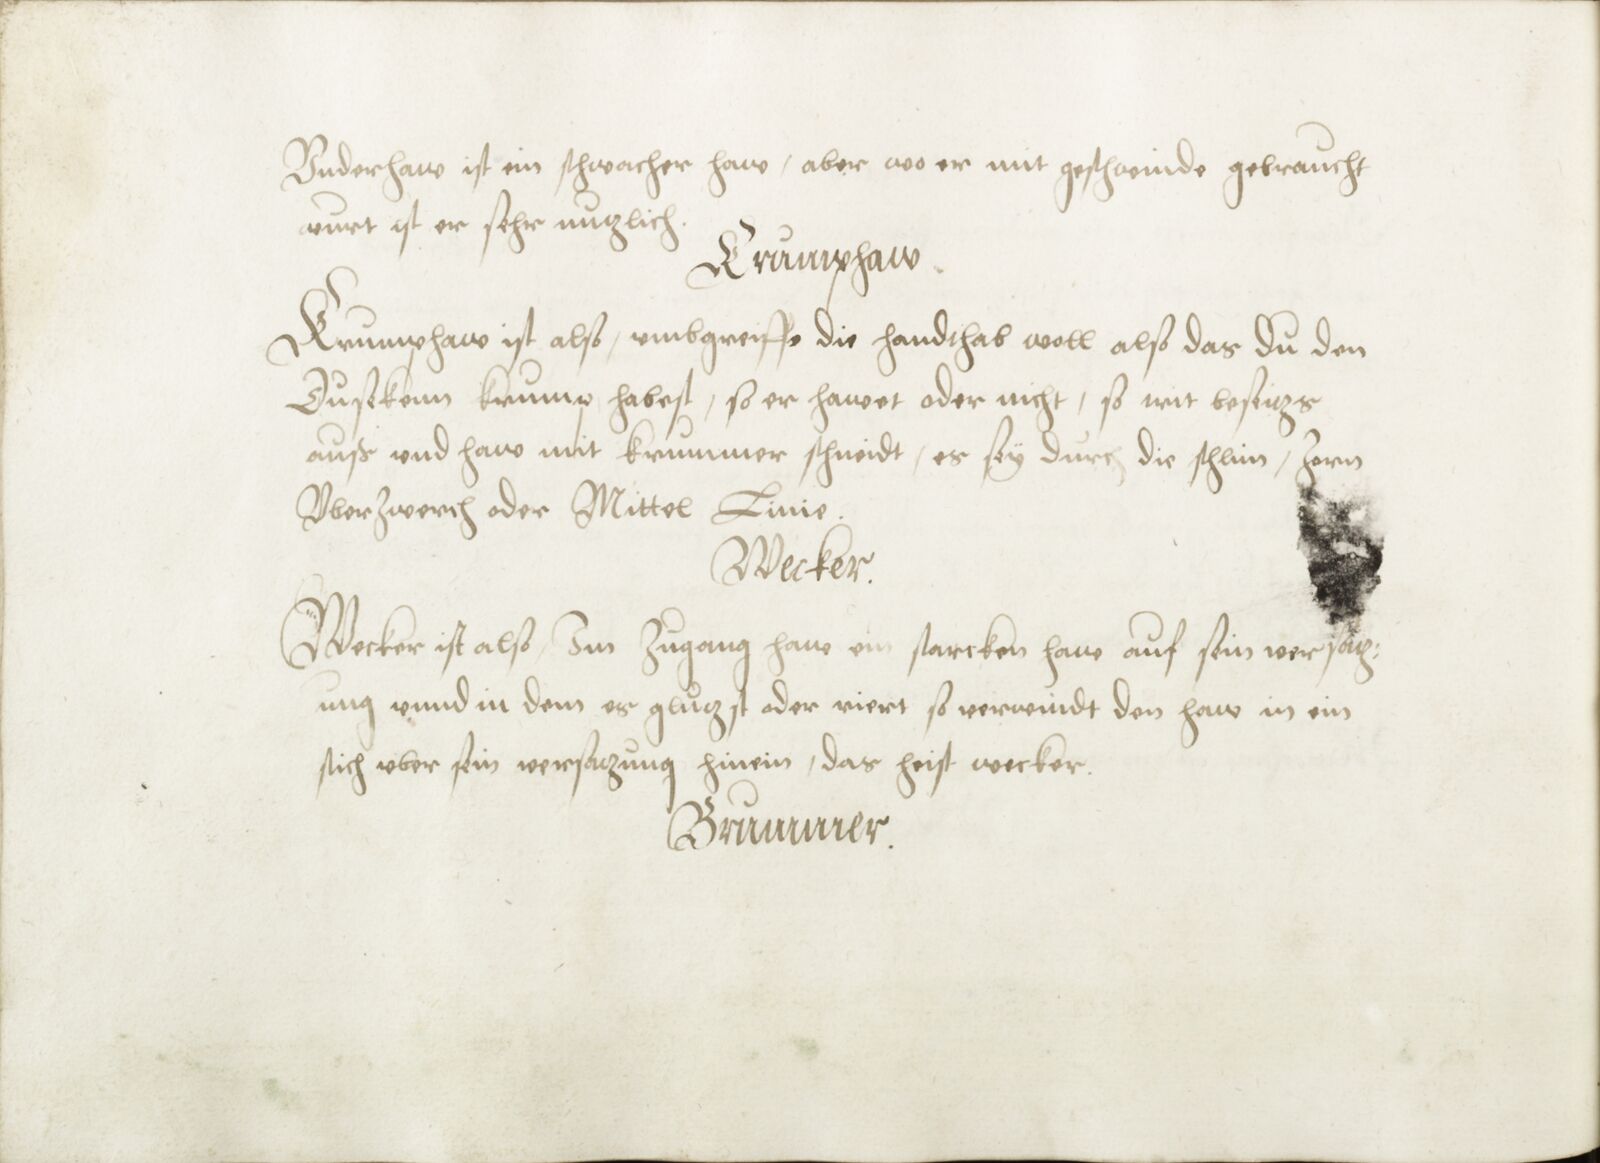 Underhaw ist ein schwacher haw / aber wo er mit geschwinde gebraucht
wurt ist er sehr nutzlich.
Krumphaw.
Krumphaw ist also / umbgreiffe die handthab woll also das du den
Dusekenn krump habest / so er hawet oder nicht / so trit beseitzs
auß und haw mit krummer schneidt / es seÿ durch die schlim / Zorn
Uberzwerch oder Mittel Linie.
Wecker.
Wecker ist also / Im Zugang haw ein starcken haw auf sein versatz:
ung unnd in dem es glutzst oder riert so verwindt den haw in ein
stich uber sein versatzung hinein / das heist wecker.
Brummer.